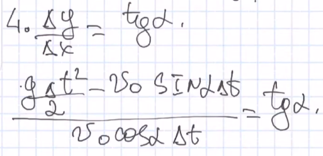 4. Δy/Δx = tgα.
(gΔt²/2 - v₀ SINαΔt)/(v₀cosα Δt) = tgα.